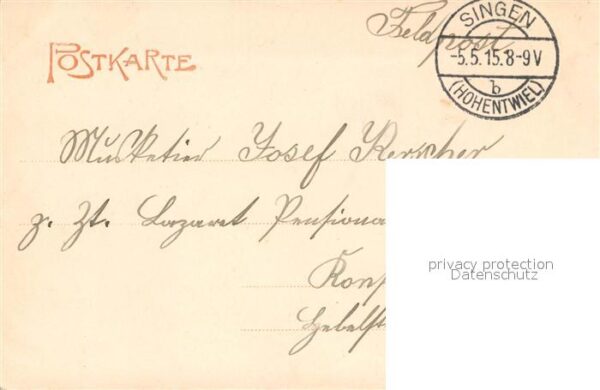 Feldpost.
SINGEN
-5.5.15.8-9V
b
(HOHENTWIEL)
POSTKARTE
Musketier Josef Kerscher
z. Zt. Lazaret Pensiona
Kons
Hebelst
privacy protection
Datenschutz